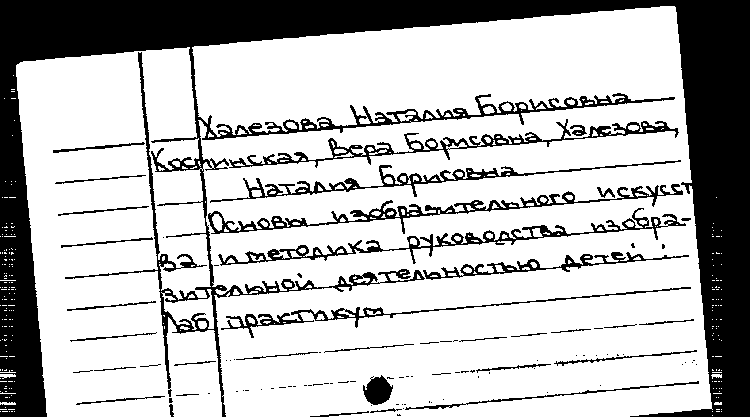 Халезова, Наталия Борисовна
Костинская, Вера Борисовна, Халезова,
Наталия Борисовна
Основы изобразительного искусст
ва и методика руководства изобра-
зительной деятельностью детей :
Лаб. практикум.